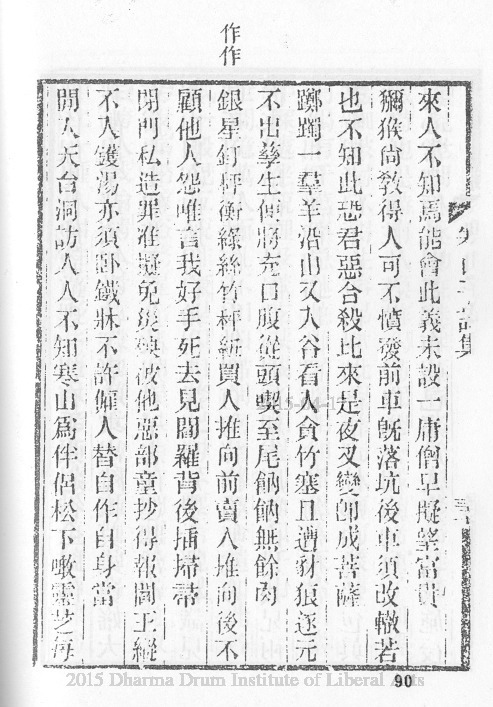 作作
來人不知焉能會此義未設一庸僧早擬望富貴
獼猴尙教得人可不憤發前車旣落坑後車須改轍若
也不知此恐君惡合殺比來是夜叉變卽成菩薩
躑躅一羣羊沿山又入谷看人貪竹塞且遭豺狼逐元
不出孳生便將充口腹從頭喫至尾䬺䬺無餘肉
銀星釘秤衡綠絲作秤紐買人推向前賣人推向後不
顧他人怨唯言我好手死去見閻羅背後插掃帚
閉門私造罪准擬免災殃被他惡部童抄得報閻王縱
不入鑊湯亦須臥鐵牀不許傭人替自作自身當
閒入天台洞訪人人不知寒山爲伴侶松下噉靈芝每
山子詩集
2015 Dharma Drum Institute of Liberal Arts
90